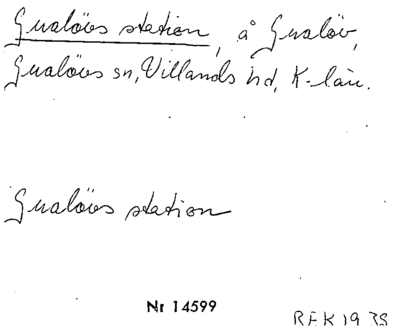 Gualövs station, å Gualöv,
Gualövs sn, Villands hd, K-län.
Gualövs station
Nr 14599
REK 1935